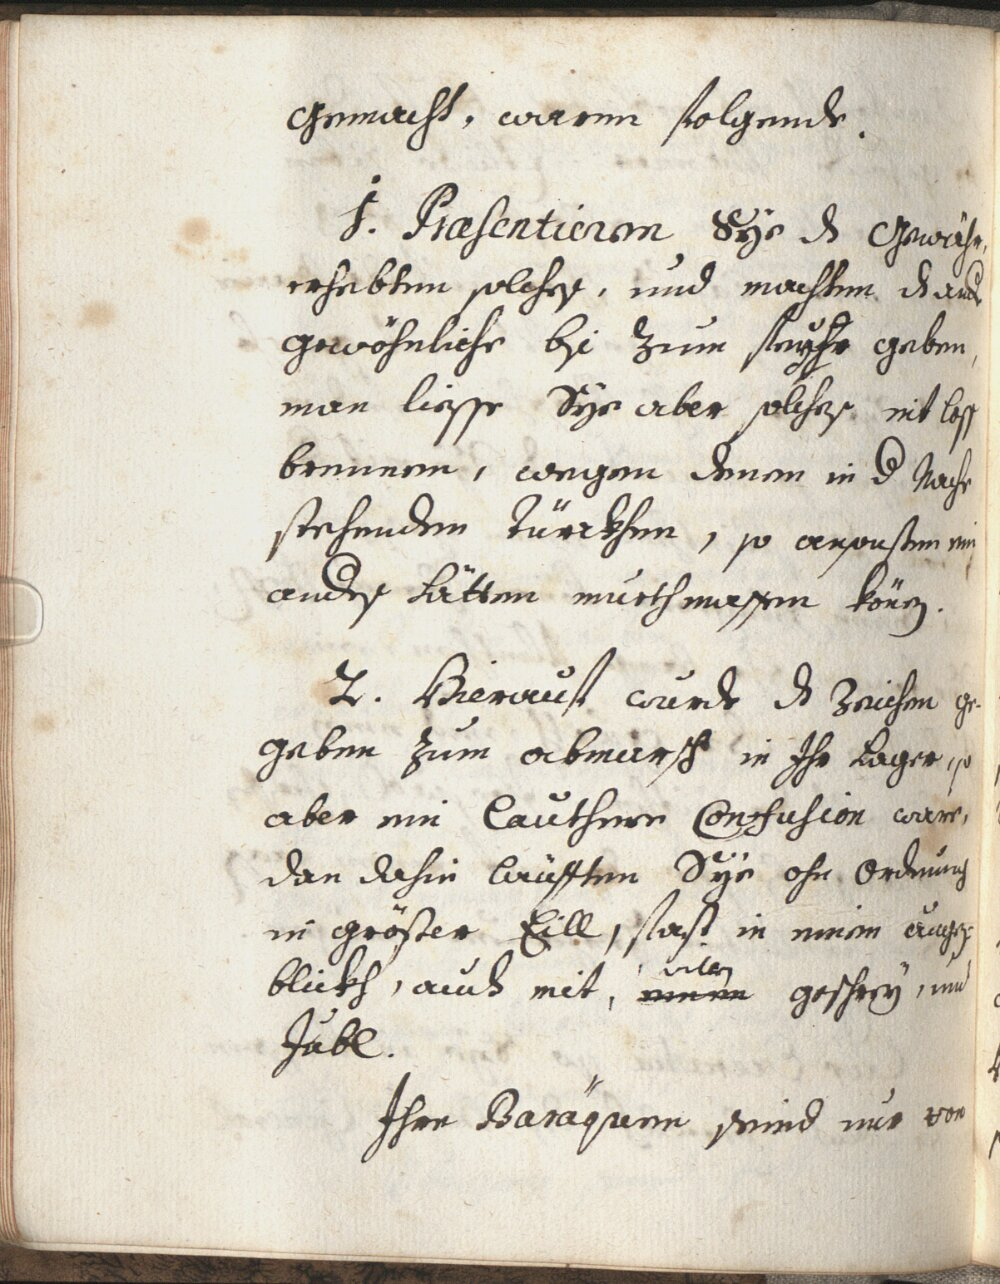 gemacht, waren folgende.
1. Præsentieren Sye d Gewähr,
erhebten solches, und machten d and
gewöhnliche bei zum feuhr geben,
man liesse Sye aber solches nit loß
brennen, wegen denen in d Nache
stehenden Türckhen, so ein
anders hätten muethmassen könen.
2. Hierauf wurde d Zeichen ge-
geben zum abmarsch in Ihr Lager, so
aber ein lauthere Confusion ware,
dan dahin läufften Sye ohn Ordnung
in gröster Eill, fast in einem augen
blickh, auch mit, vilen geschrey, und
Jubl.
Ihre Baräquen seind nur von